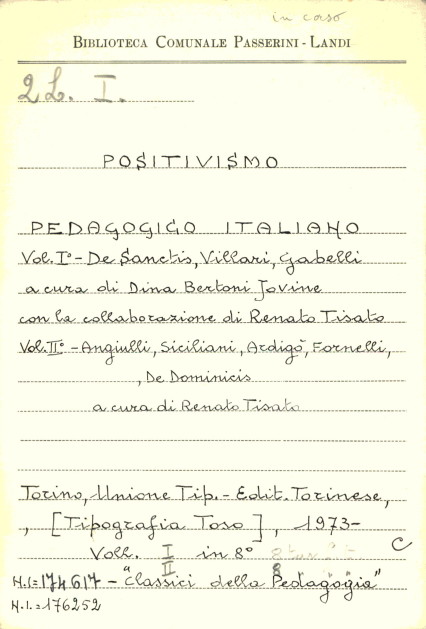 in corso
BIBLIOTECA COMUNALE PASSERINI - LANDI
2L. I.
POSITIVISMO
PEDAGOGICO ITALIANO
Vol. Iº - De Sanctis, Villari, Gabelli
a cura di Dina Bertoni Jovine
con la collaborazione di Renato Tisato
Vol. IIº - Angiulli, Siciliani, Ardigò, Fornelli,
, De Dominicis
a cura di Renato Tisato
Torino, Unione Tip. - Edit. Torinese,
, [Tipografia Toso], 1973-
Voll. I in 8º
C
II 8
N.I.=174617 - "Classici della Pedagogia"
N.I.=176252